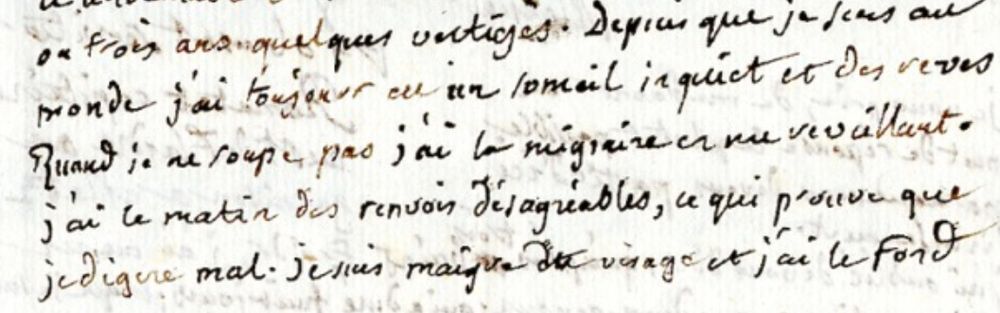 ou trois ans quelques vertiges. Depuis que je suis au
monde j'ai toujours eu un someil inquiet et des reves
Quand je ne soupe pas j'ai la migraine en me reveillant.
j'ai le matin des renvois désagréables, ce qui prouve que
je digere mal. je suis maigre du visage et j'ai le Fond